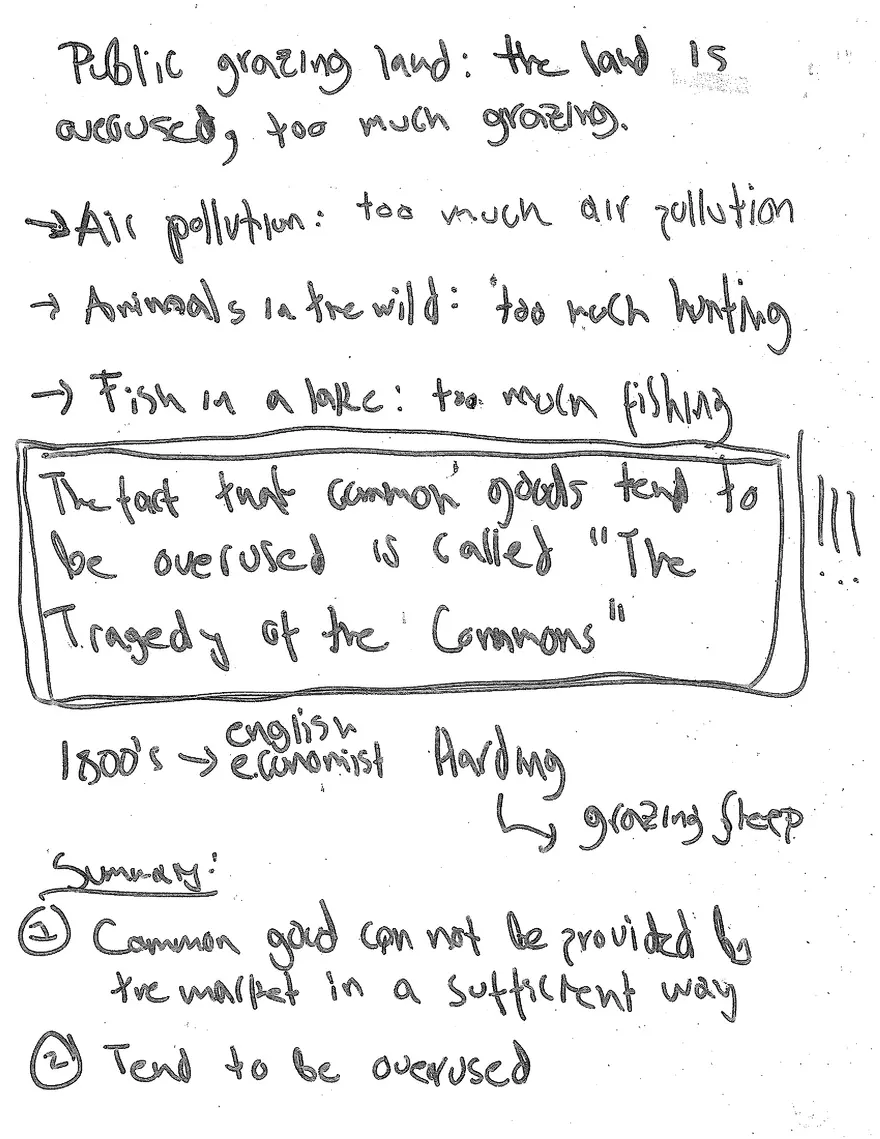 Public grazing land: the land is
overused, too much grazing.
→ Air pollution: too much air pollution
→ Animals in the wild: too much hunting
→ Fish in a lake: too much fishing
The fact that common goods tend to
be overused is called "The
Tragedy of the Commons"
!!!
1800's → english economist Harding
↳ grazing sheep
Summary:
① Common good can not be provided by
the market in a sufficient way
② Tend to be overused